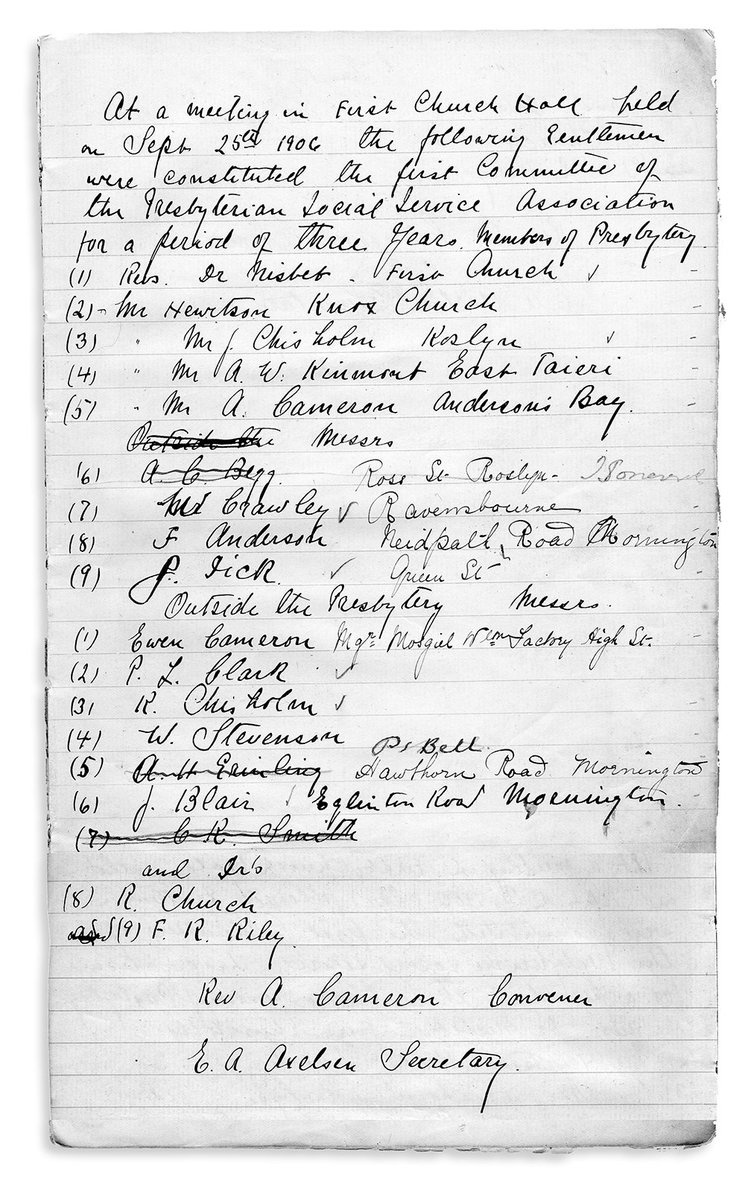 At a meeting in First Church Hall held
on Sept 25th 1906 the following Gentlemen
were constituted the first Committee of
the Presbyterian Social Service Association
for a period of three Years. Members of Presbytery.
(1) Revs. Dr Nisbet - First Church ✓
(2) - Mr Hewitson Knox Church
(3) " Mr J. Chisholm Roslyn ✓
(4) " Mr A. W. Kinmont East Taieri
(5) " Mr A. Cameron Anderson's Bay.
Outside the Messrs
(6) A. C. Begg. Ross St Roslyn -
(7) Mr Crawley ✓ Ravensbourne
(8) F Anderson Neidpath Road Mornington
(9) J. Fick. ✓ Queen St
Outside the Presbytery Messrs.
(1) Ewen Cameron Mgr. Mosgiel Wlln Factory High St.
(2) P. L. Clark ✓
(3) R. Chisholm ✓
(4) W. Stevenson
Ps Bell
(5) A H Hawthorn Road Mornington
(6) J. Blair ✓ Eglinton Road Mornington.
(7) C R. Smith
and Dr's
(8) R. Church
and (9) F. R. Riley.
Rev A. Cameron Convener
E. A. Axelsen Secretary.